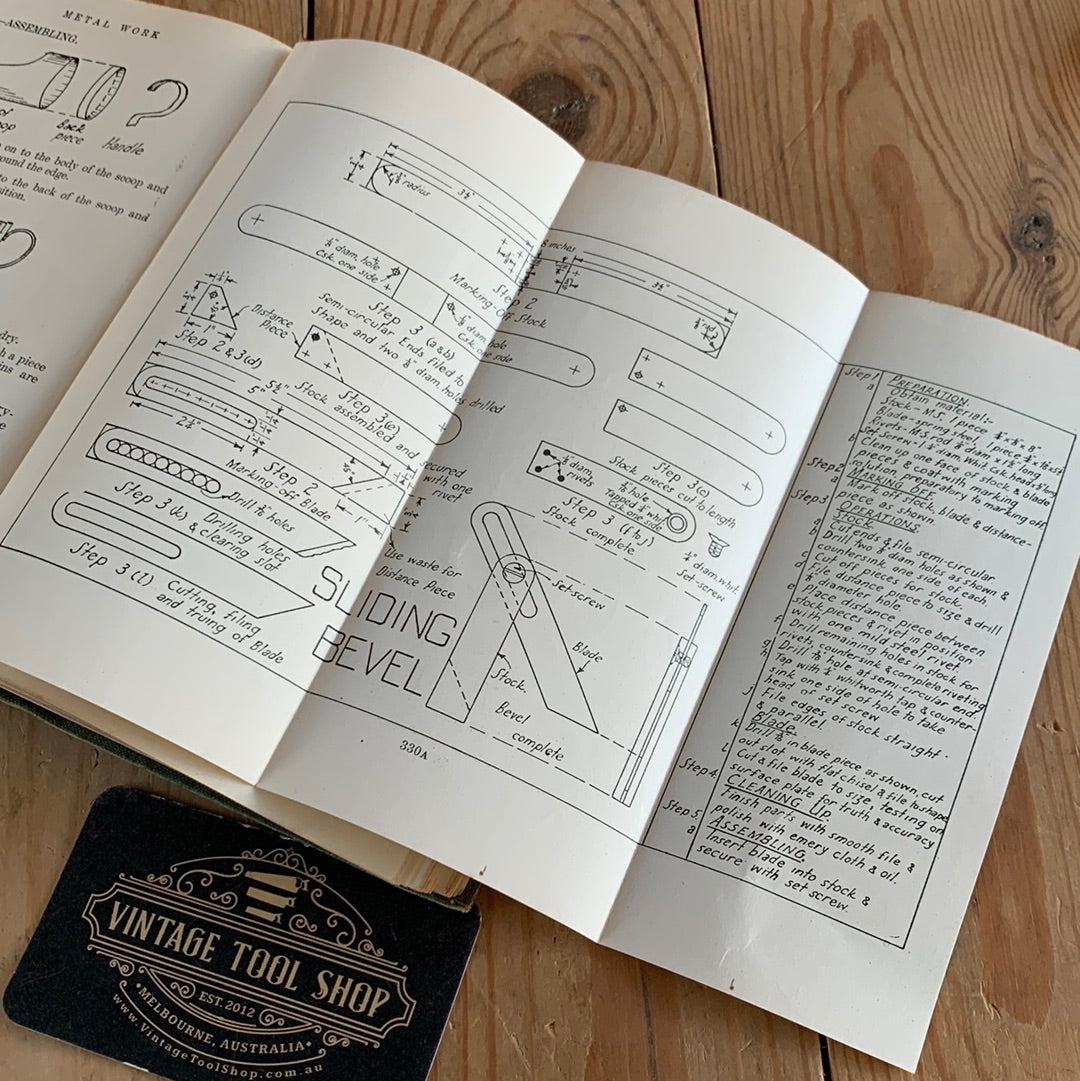 METAL WORK
—ASSEMBLING.
back
piece
Handle
on to the body of the scoop and
round the edge.
to the back of the scoop and
dry.
h a piece
ns are
radius
3½"
diam. hole
Csk. one side
Marking Off Stock
Step 2
6 inches
Step 3 (a&b)
Semi-circular Ends filed to
Shape and two ⅛" diam. holes drilled
Distance
piece
1"
Step 2 & 3(d)
Step 3(e)
Stock assembled and
secured with one
rivet
5½"
5"
Step 2
Marking off Blade
1"
Drill holes
Drilling holes
Step 3 (k) & clearing slot
Step 3 (l) Cutting, filing
and truing of Blade
Use waste for
Distance Piece
SLIDING
BEVEL
Step 3(c)
Stock pieces cut to length
⅛" diam.
rivets
hole
Tapped ¼" whit.
Csk. one side
Step 3 (f to j)
Stock complete
¼" diam. whit.
Set-screw
Set-screw
Blade
Stock.
Bevel
complete
330A
Step 1 PREPARATION.
a Obtain material:-
Stock- M.S. 1 piece
Blade-spring steel, 1 piece
Rivets-
Set screw ¼" diam. Whit. Csk. head
b Clean up one face of stock & blade
pieces & coat with marking
solution preparatory to marking off
Step 2 MARKING OFF.
a Mark off stock, blade & distance-
piece as shown.
Step 3 OPERATIONS.
Stock.
a Cut ends & file semi-circular
b Drill two ⅛" diam holes as shown &
countersink one side of each,
c Cut off pieces for stock.
d File distance piece to size & drill
⅛" diameter hole.
e Place distance piece between
stock pieces & rivet in position
with one mild steel rivet
f Drill remaining holes in stock for
rivets, countersink & complete riveting
g Drill hole at semi-circular end.
Tap with ¼" whitworth tap & counter-
sink one side of hole to take
head of set screw
j File edges of stock straight
& parallel.
Blade.
k Drill in blade piece as shown, cut
out slot with flat chisel & file to shape
l Cut & file blade to size, testing on
surface plate for truth & accuracy
Step 4 CLEANING UP.
Finish parts with smooth file &
polish with emery cloth & oil.
Step 5 ASSEMBLING.
a Insert blade into stock &
secure with set screw.
VINTAGE TOOL SHOP
EST. 2012
•MELBOURNE, AUSTRALIA•
www.VintageToolShop.com.au